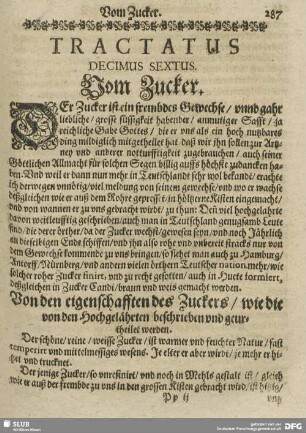 Vom Zucker. 287
TRACTATUS
DECIMUS SEXTUS.
Vom Zucker.
DEr Zucker ist ein frembdes Gewechse / vnnd gahr
liebliche / grosse süssigkeit habender / anmutiger Safft / ja
reichliche Gabe Gottes / die er vns als ein hoch nutzbares
ding mildiglich mitgetheilet hat daß wir jhn sollen zur Artz-
ney vnd anderer notturfftigkeit zugebrauchen / auch seiner
Göttlichen Allmacht für solchen Segen billig auffs höchst zudancken ha-
ben. Vnd weil er dann nun mehr in Teutschlande sehr wol bekendt / erachte
ich derwegen vnnötig / viel meldung von seinem gewechse / vnd wo er wachse
deßgleichen wie er auß dem Rohre gepresset / in höltzerne Kisten eingemacht /
vnd von wannen er zu vns gebracht wird / zu thun: Den viel hochgelahrte
davon notturfftig geschrieben / auch man in Teutschland gnungsamb Leute
find / die derer örther / da der Zucker wechst / gewesen seyn / vnd noch Jährlich
an dieselbigen Ende schiffen / vnd jhn also rohe vnd vnbereit stracks nur von
dem Gewechse kommende zu vns bringen / so siehet man auch zu Hamburg /
Antorff / Nürnberg / vnd andern vielen örthern Teutscher nation, mehr / wie
solcher rohe Zucker finirt, vnd zu recht gesotten / auch in Huete formiert,
deßgleichen in Zucker Candi / braun vnd weis gemacht werden.
Von den eigenschafften des Zuckers / wie die
von den Hochgelährten beschrieben vnd geur-
theilet werden.
Der schöne / reine / weisse Zucker / ist warmer vnd feuchter Natur / fast
temperirt vnd mittelmessiges wesens. Je elter er aber wird / je mehr er hi-
tzet vnd trucknet.
Der jenige Zucker / so vnrefinirt / vnd noch in Mehls gestalt ist / gleich
wie er auß der frembde zu vns in den grossen Kisten gebracht wird / ist hitzig /
P p ij vnd
SLUB